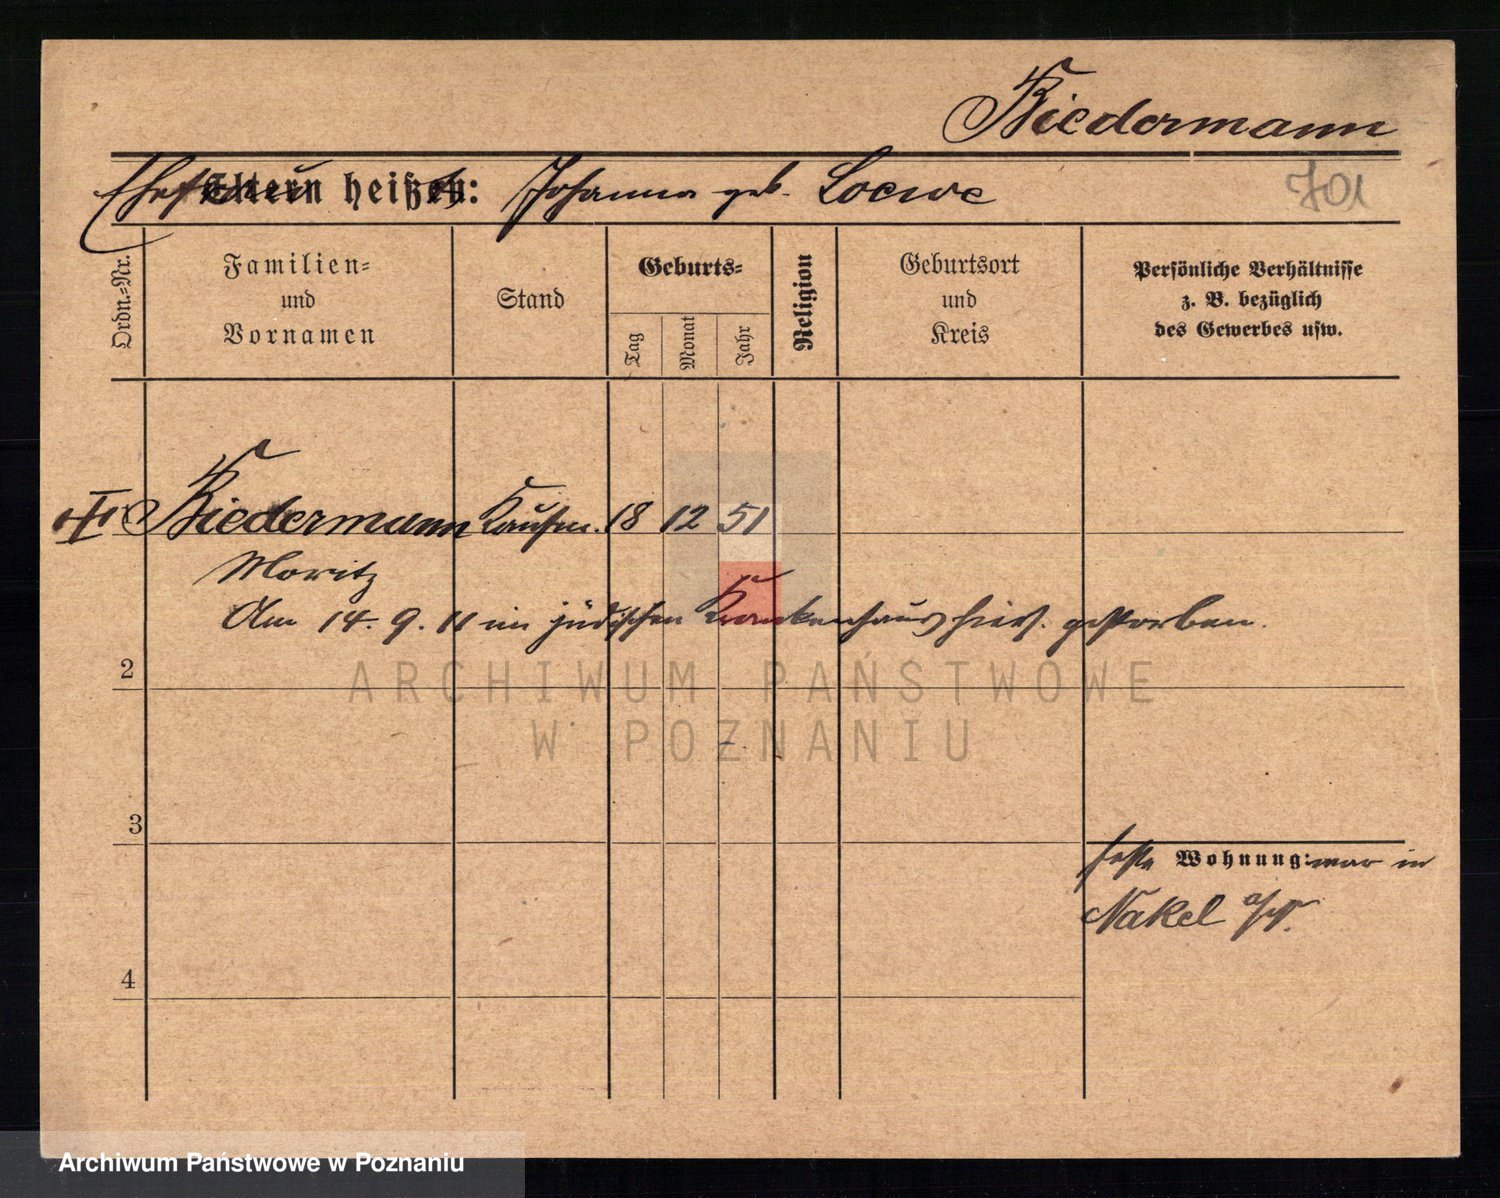 Biedermann
Ehefrau Eltern heißen: Johanna geb. Loewe
701
Ordn.=Nr.
Familien=
und
Vornamen
Stand
Geburts=
Tag
Monat
Jahr
Religion
Geburtsort
und
Kreis
Persönliche Verhältnisse
z. B. bezüglich
des Gewerbes usw.
Biedermann Kaufm. 18 12 51
Moritz
Am 14. 9. 11 im jüdischen Krankenhaus hies. gestorben.
2
3
feste Wohnung: war in
Nakel a/N.
4
ARCHIWUM PAŃSTWOWE
W POZNANIU
Archiwum Państwowe w Poznaniu